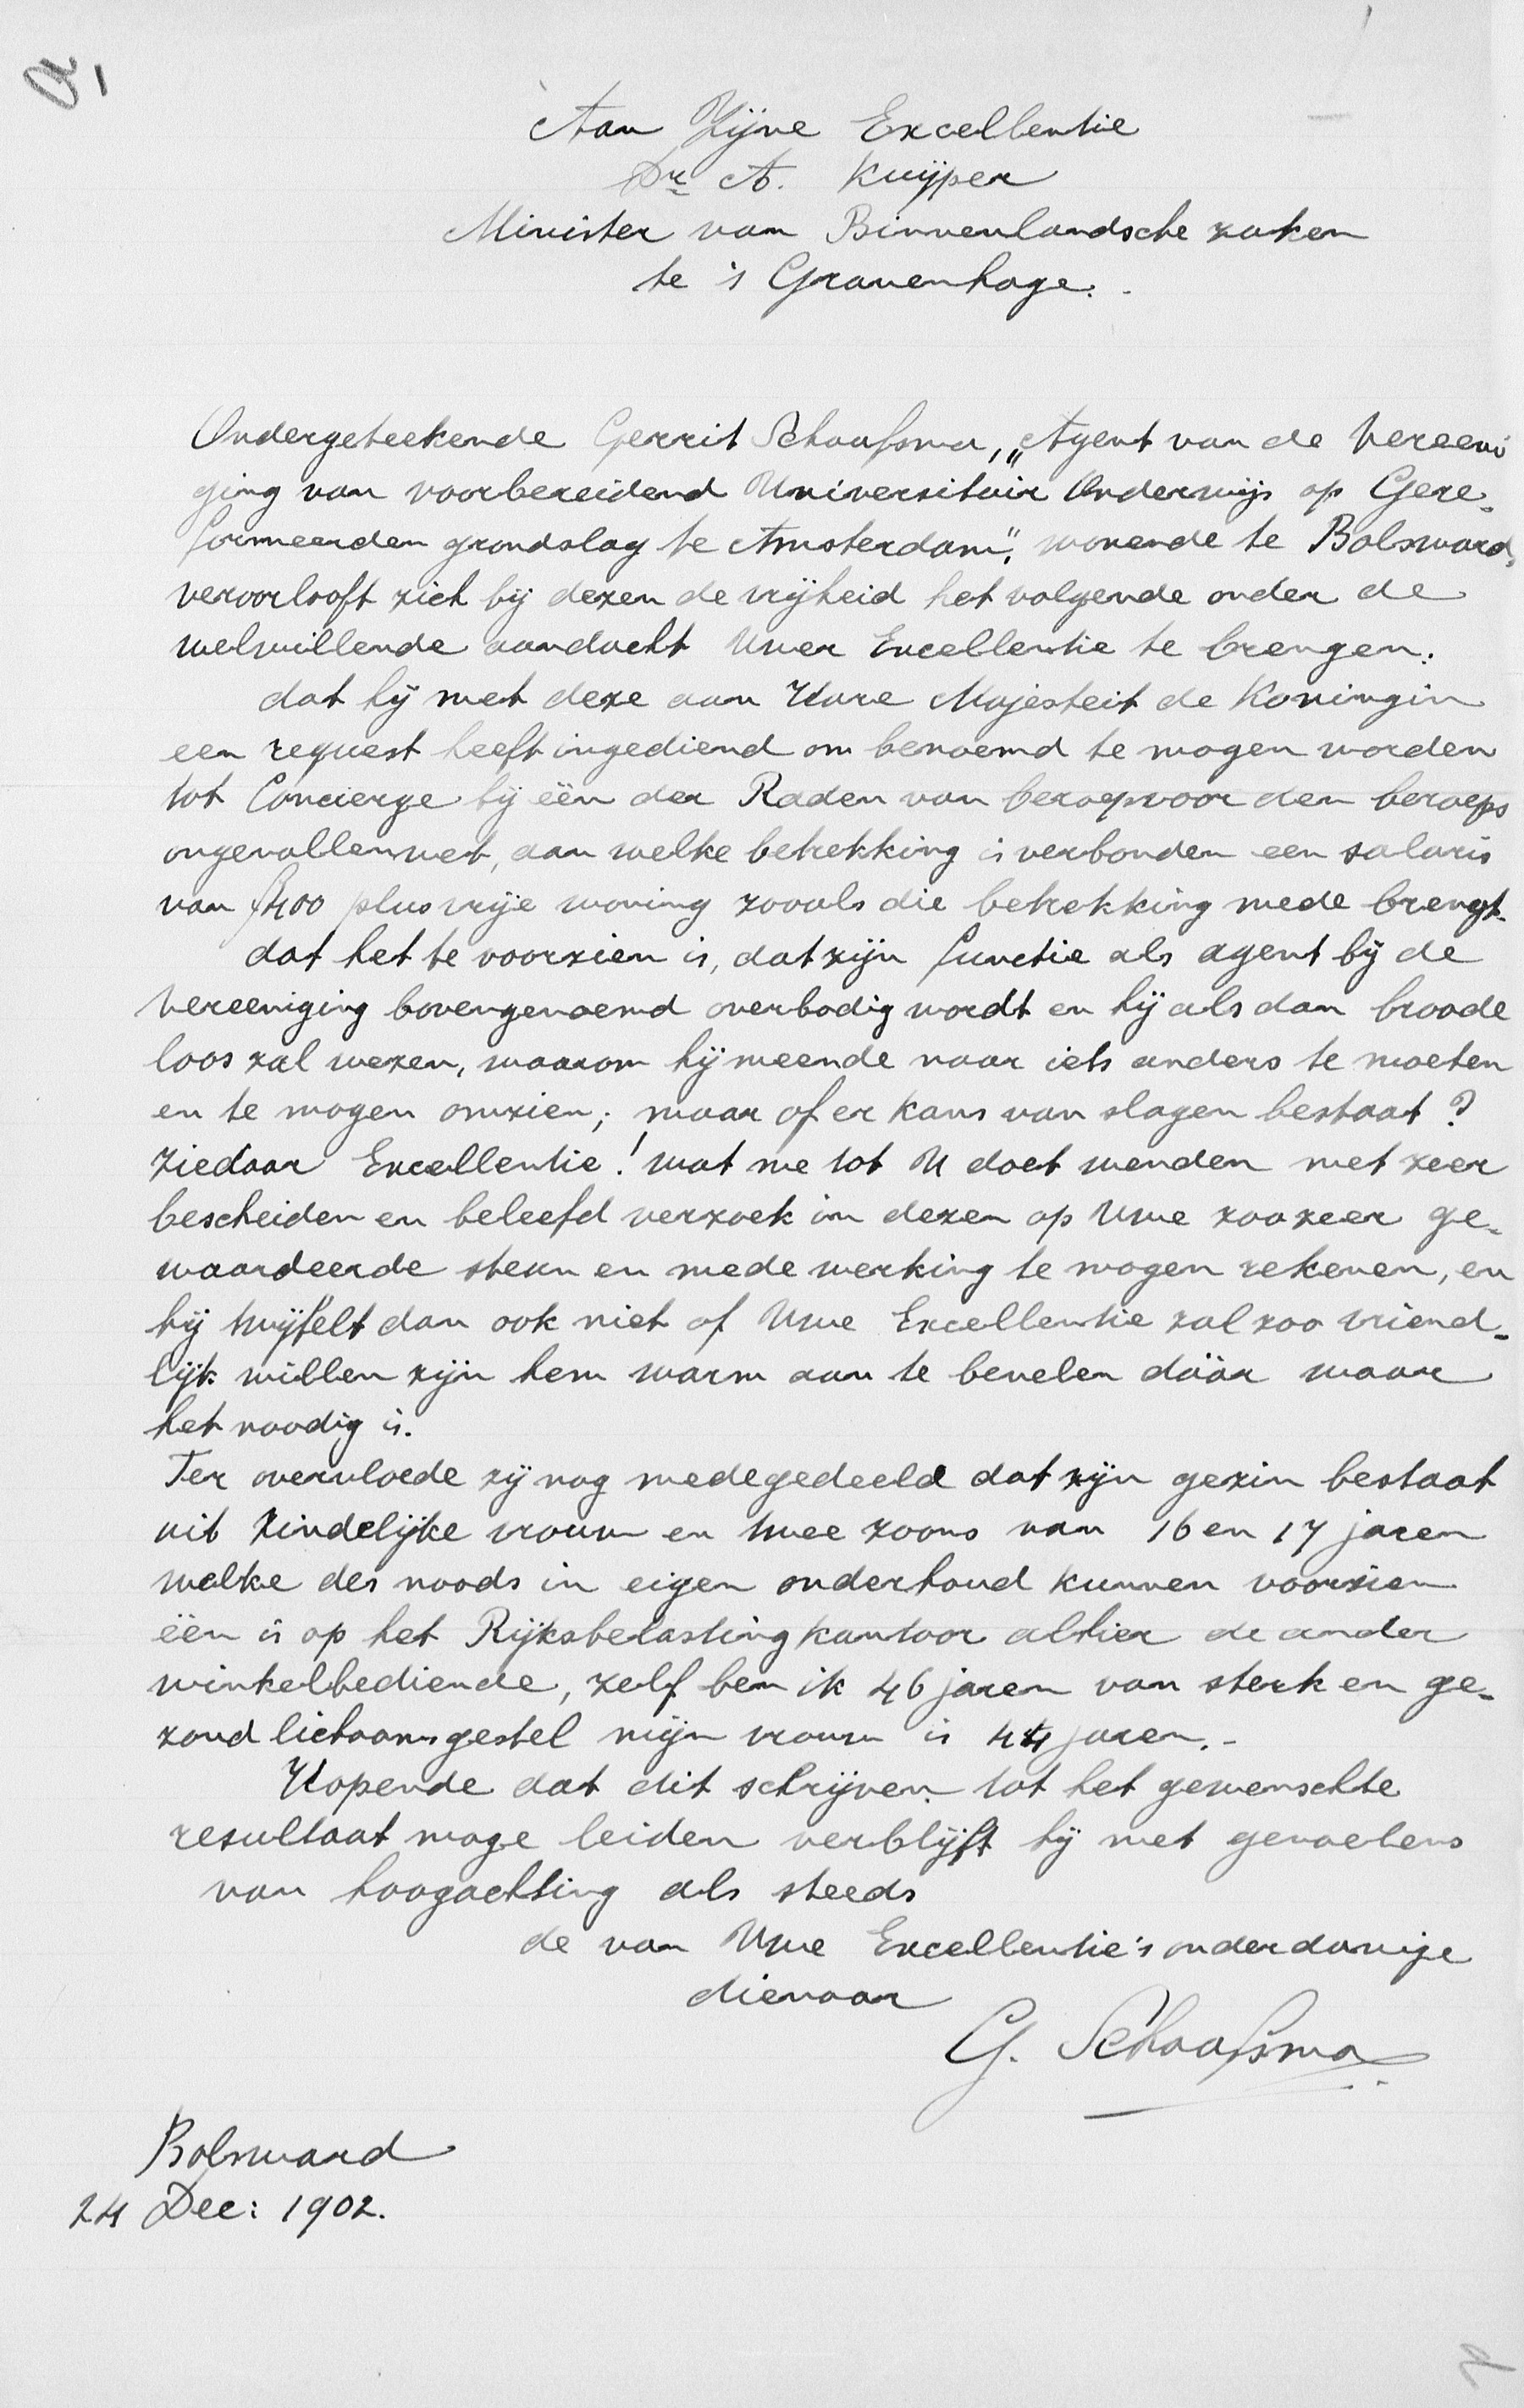 Aan Zijne Excellentie
Dr. A. Kuijper
Minister van Binnenlandsche zaken
te 's Gravenhage.
Ondergeteekende Gerrit Schaafsma, "Agent van de Vereeni
ging van voorbereidend Universitair Onderwijs op Gere-
formeerden grondslag te Amsterdam", wonende te Bolsward,
veroorlooft zich bij dezen de vrijheid het volgende onder de
welwillende aandacht Uwer Excellentie te brengen:
dat hij met deze aan Hare Majesteit de Koningin
een request heeft ingediend om benoemd te mogen worden
tot Concierge bij één der Raden van beroep voor den beroeps
ongevallenwet, aan welke betrekking is verbonden een salaris
van f400 plus vrije woning zooals die betrekking mede brengt.
dat het te voorzien is, dat zijn functie als agent bij de
Vereeniging bovengenoemd overbodig wordt en hij als dan broode
loos zal wezen, waarom hij meende naar iets anders te moeten
en te mogen omzien; maar of er kans van slagen bestaat?
Ziedaar Excellentie! wat me tot U doet wenden met zeer
bescheiden en beleefd verzoek in dezen op Uwe zoozeer ge-
waardeerde steun en mede werking te mogen rekenen, en
hij twijfelt dan ook niet of Uwe Excellentie zal zoo vriend-
lijk willen zijn hem warm aan te bevelen dáár waar
het noodig is.
Ter overvloede zij nog medegedeeld dat zijn gezin bestaat
uit zindelijke vrouw en twee zoons van 16 en 17 jaren
welke des noods in eigen onderhoud kunnen voorzien
één is op het Rijksbelastingkantoor alhier de ander
winkelbediende, zelf ben ik 46 jaren van sterk en ge-
zond lichaamsgestel mijn vrouw is 44 jaren.-
Hopende dat dit schrijven tot het gewenschte
resultaat moge leiden verblijft hij met gevoelens
van hoogachting als steeds
de van Uwe Excellentie's onderdanige
dienaar
G. Schaafsma
Bolsward
24 Dec: 1902.